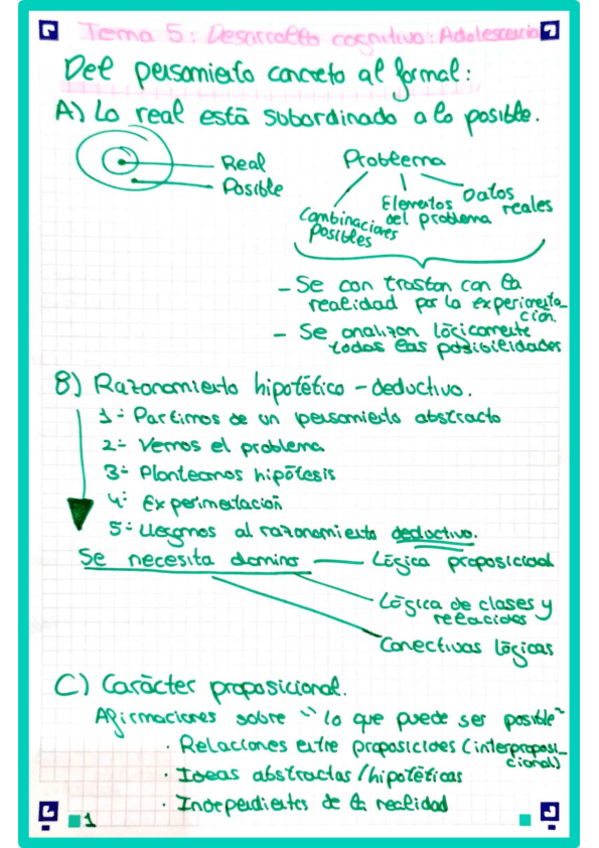 Tema 5: Desarrollo cognitivo: Adolescencia
Del pensamiento concreto al formal:
A) Lo real está subordinado a lo posible.
Real
Posible
Problema
Combinaciones posibles
Elementos del problema
Datos reales
- Se con trastan con la
realidad por la experimenta_
ción.
- Se analizan lógicamente
todas las posibilidades
B) Razonamiento hipotético - deductivo.
1º Partimos de un pensamiento abstracto
2º Vemos el problema
3º Planteamos hipótesis
4º Experimentación
5º Llegamos al razonamiento deductivo.
Se necesita dominio
Lógica proposicional
Lógica de clases y
relaciones
Conectivas lógicas
C) Carácter proposicional.
Afirmaciones sobre "lo que puede ser posible"
· Relaciones entre proposiciones (interproposi_
cional)
· Ideas abstractas / hipotéticas
· Independientes de la realidad
1